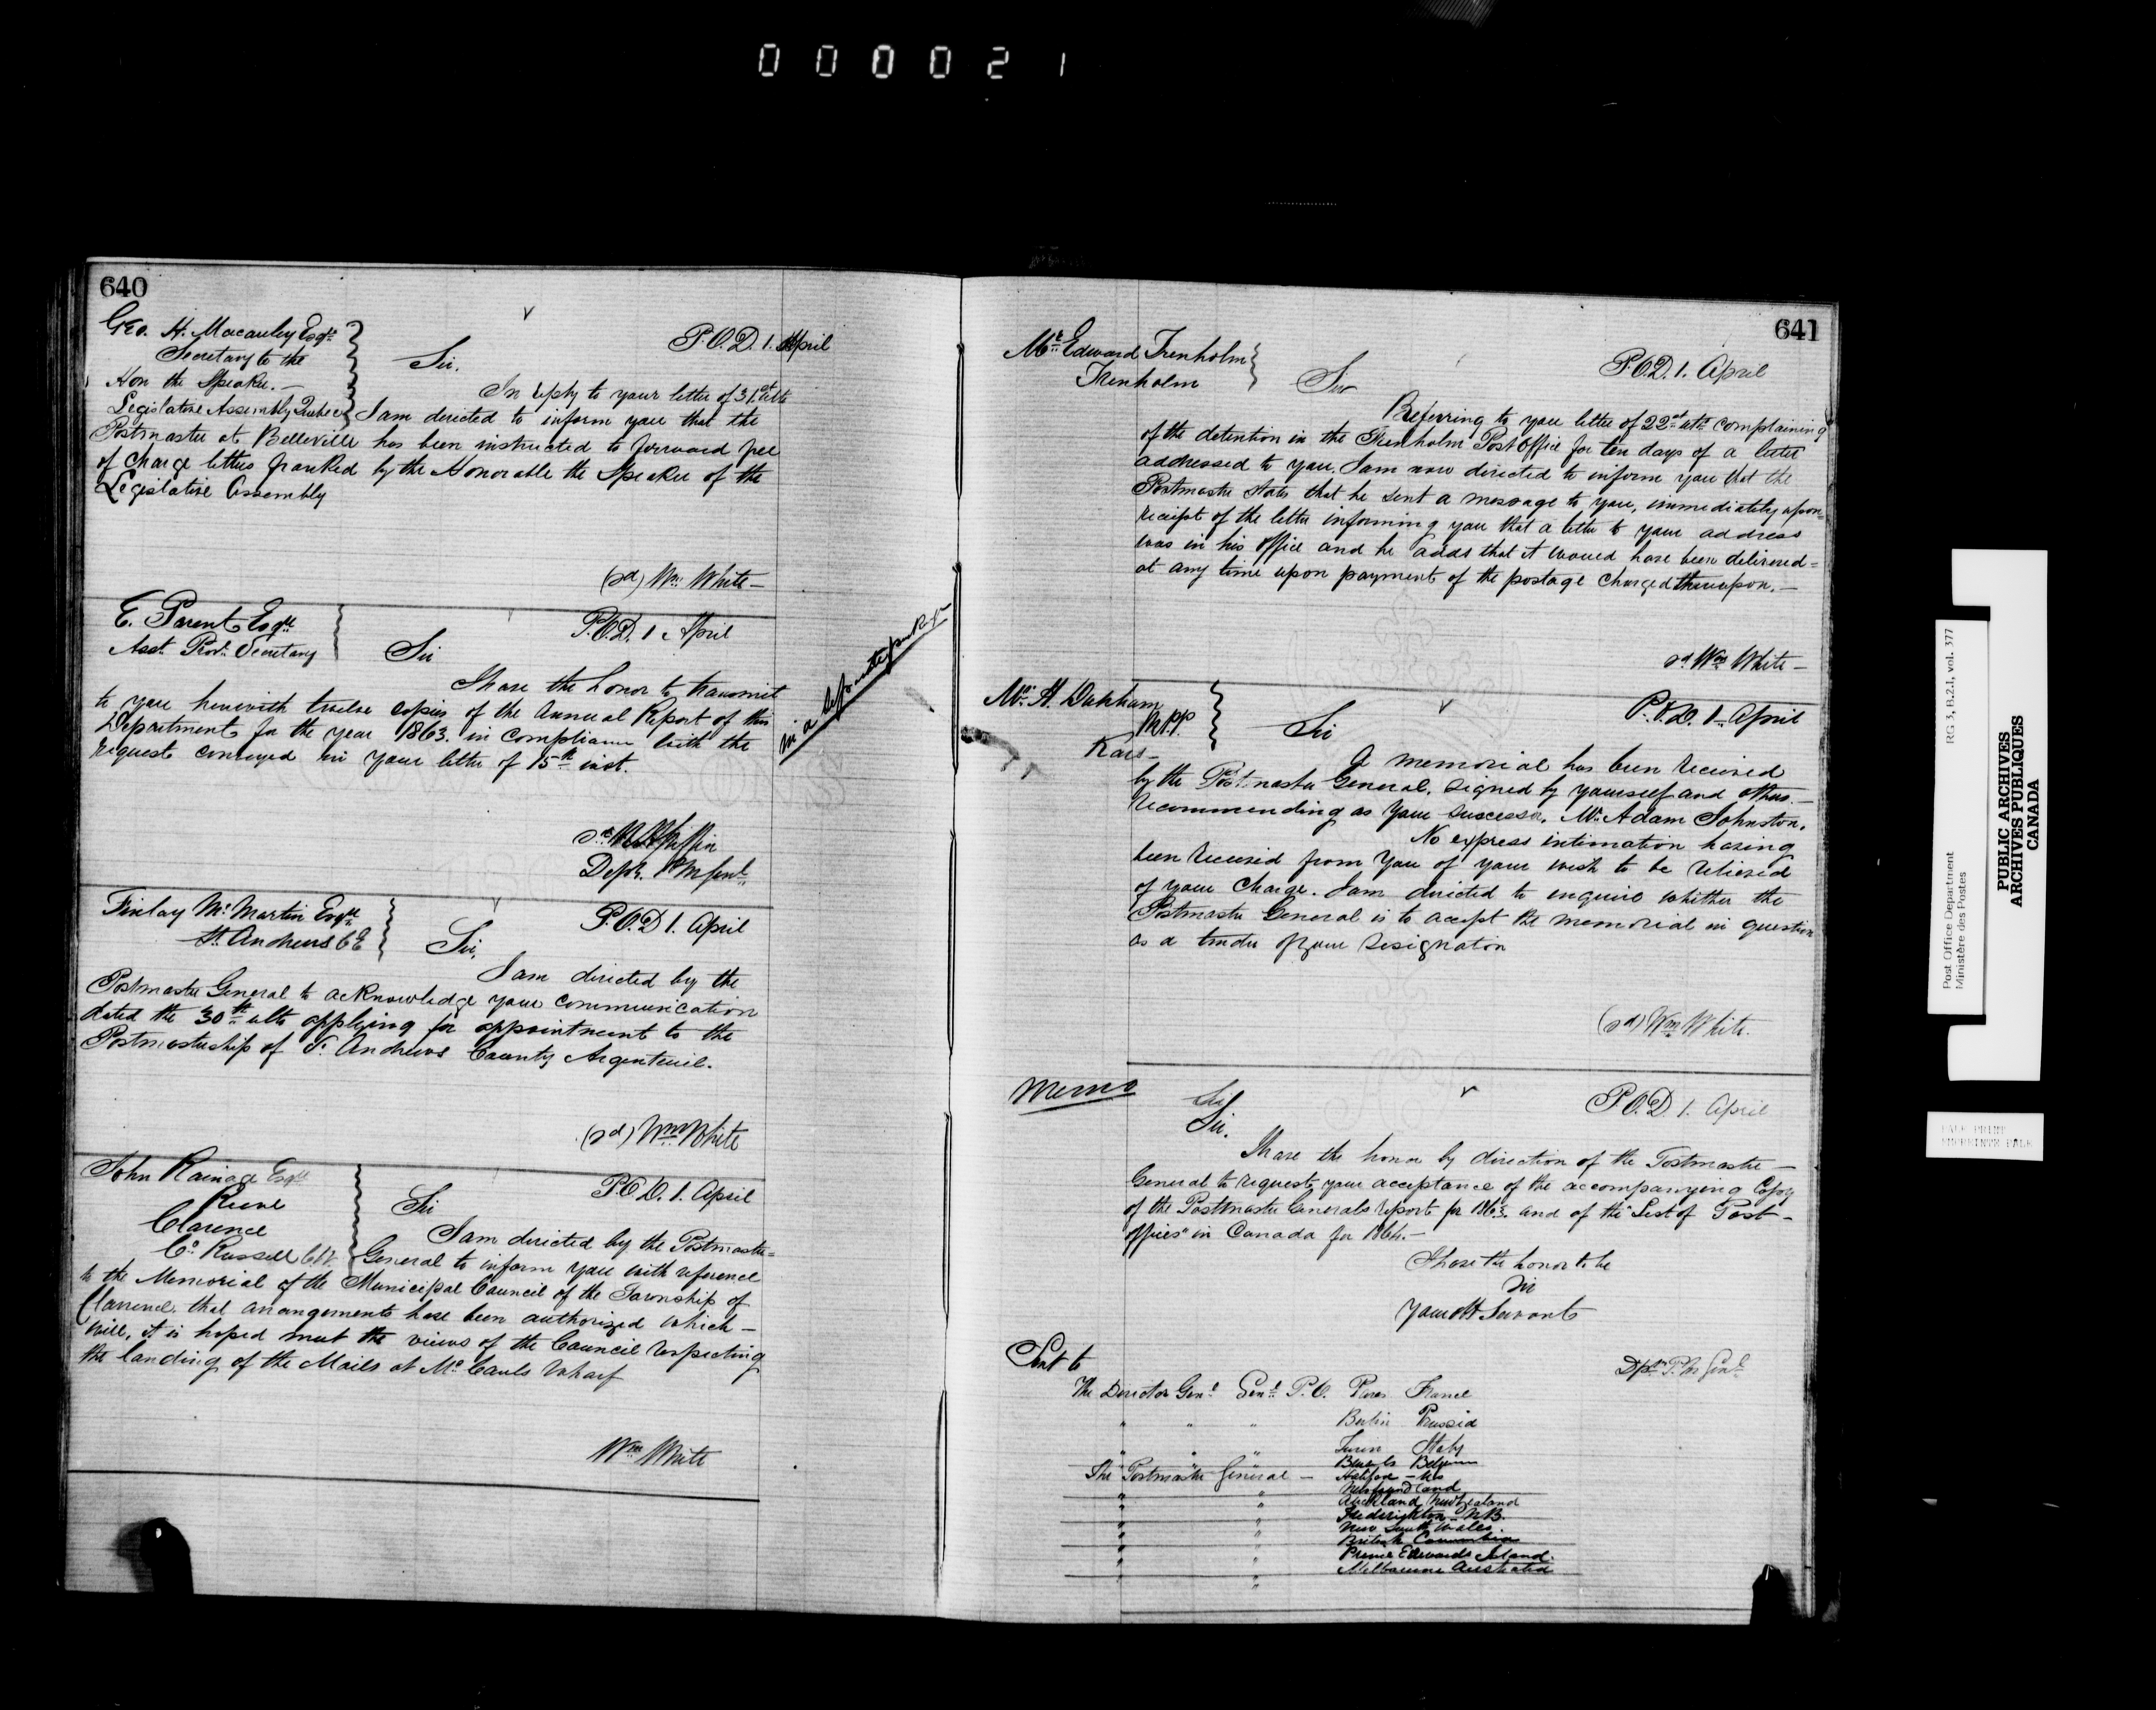 000021
640
Geo. H. Macauley Esqre
Secretary to the
Hon the Speaker. —
Legislative Assembly Quebec
P.O.D. 1. April
Sir.
In reply to your letter of 31st ulto
I am directed to inform you that the
Postmaster at Belleville has been instructed to forward free
of charge letters franked by the Honorable the Speaker of the
Legislative Assembly
(sd) Wm White —
E. Parent Esqre
Asst. Prov. Secretary
P.O.D. 1. April
Sir
I have the honor to transmit
to you herewith twelve copies of the Annual Report of this
Department for the year 1863. in compliance with the
request conveyed in your letter of 15th inst.
in a separate package
sd W H Griffin
Depy. P M Genl
Finlay McMartin Esqre
St. Andrews C E
P.O.D 1. April
Sir,
I am directed by the
Postmaster General to acknowledge your communication
dated the 30th ulto applying for appointment to the
Postmastership of St. Andrews County Argenteuil.
(sd) Wm White
John Rainage Esqre
Reeve
Clarence
Co. Russell C.W.
P.O.D. 1. April
Sir
I am directed by the Postmaster=
General to inform you with reference
to the Memorial of the Municipal Council of the Township of
Clarence, that arrangements have been authorized which —
will, it is hoped meet the views of the Council respecting
the landing of the Mails at McCauls Wharf
Wm White
641
Mr Edward Trenholm
Trenholm
P.O.D. 1. April
Sir
Referring to you letter of 22nd ulto complaining
of the detention in the Trenholm Post Office for ten days of a letter
addressed to you. I am now directed to inform you that the
Postmaster states that he sent a message to you, immediately upon=
receipt of the letter informing you that a letter to your address
was in his office and he adds that it would have been delivered=
at any time upon payment of the postage charged thereupon. —
sd Wm White —
Mr. H.
M.P.P.
Kars —
P.O.D. 1. April
Sir
A memorial has been received
by the Postmaster General, signed by yourself and others. —
recommending as your successor, Mr. Adam Johnston.
No express intimation having
been received from you of your wish to be relieved
of your charge. I am directed to enquire whether the
Postmaster General is to accept the memorial in question
as a tender of your resignation
(sd) Wm White.
Memo
P.O.D. 1. April
Sir.
I have the honor by direction of the Postmaster —
General to request your acceptance of the accompanying Copy
of the Postmaster Generals report for 1863. and of the "List of Post —
offices" in Canada for 1864. —
I have the honor to be
Sir
Your Ob Servant
Dpy P.M Genl
Sent to
The Director Genl Genl P.O. Paris France
" " " Berlin Prussia
" " " Turin Italy
Brussels Belgium
The Postmaster General — Halifax — NS
" " Newfoundland
" " Auckland New Zealand
" " Frederickton — N.B.
" " New South Wales
" " British Columbia
" " Prince Edwards Island.
" " Melbourne Australia
Post Office Department RG 3, B.2.1, vol. 377
Ministère des Postes
PUBLIC ARCHIVES
ARCHIVES PUBLIQUES
CANADA
PALE PRINT